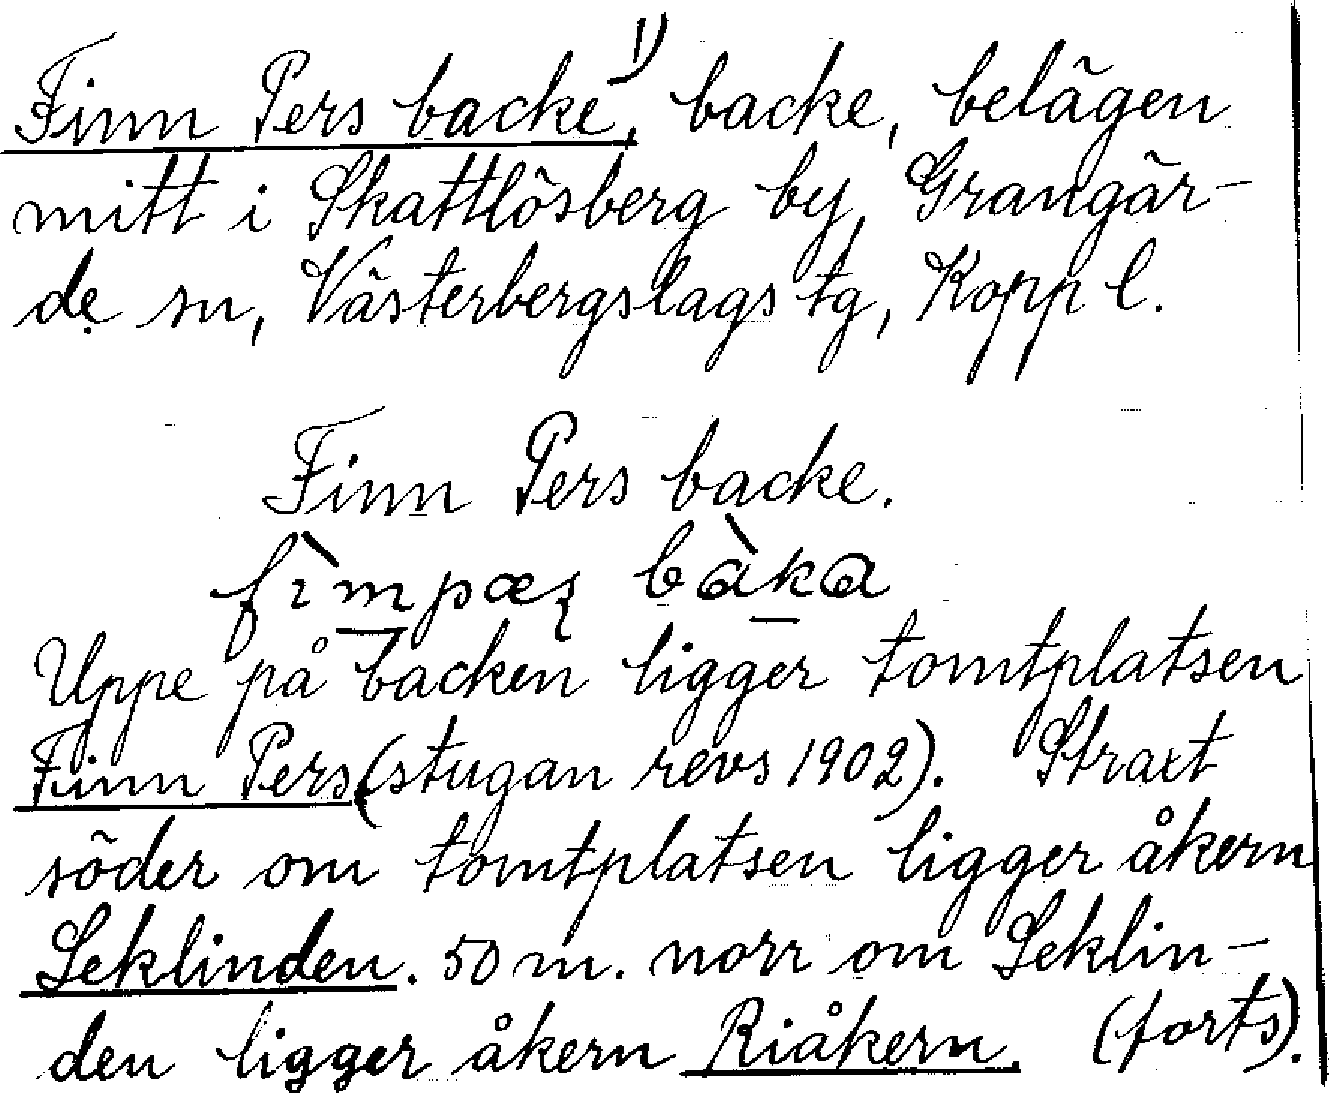 Finn Pers backe,¹⁾ backe, belägen
mitt i Skattlösberg by, Grangär-
de sn, Västerbergslags tg, Kopp l.
Finn Pers backe.
fìmpæʂ bàka
Uppe på backen ligger tomtplatsen
Finn Pers (stugan revs 1902). Straxt
söder om tomtplatsen ligger åkern
Leklinden. 50 m. norr om Leklin-
den ligger åkern Riåkern. (forts).